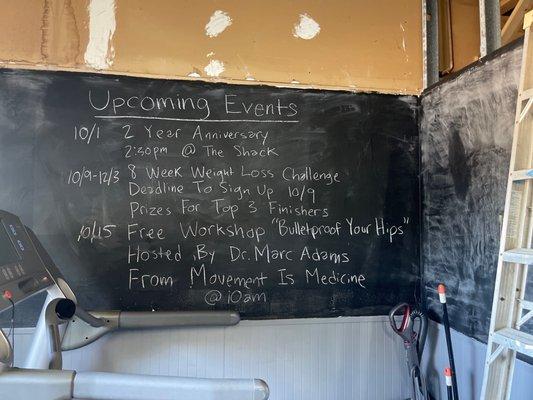 Upcoming Events
10/1 2 Year Anniversary
2:30pm @ The Shack
10/9-12/3 8 Week Weight Loss Challenge
Deadline To Sign Up 10/9
Prizes For Top 3 Finishers
10/15 Free Workshop "Bulletproof Your Hips"
Hosted By Dr. Marc Adams
From Movement Is Medicine
@ 10am